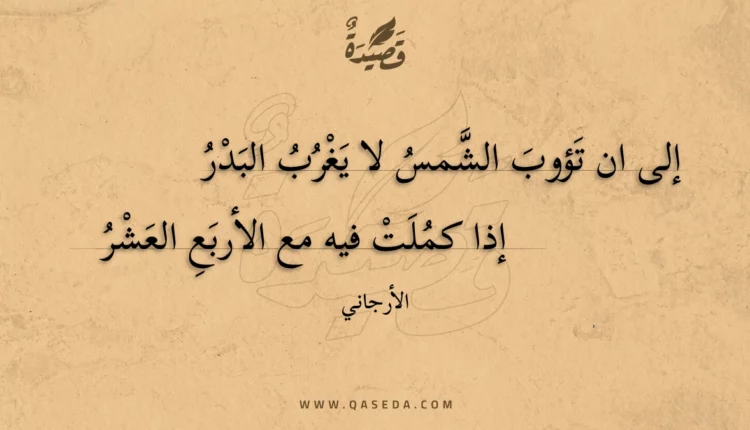 قَصِيْدَةٌ
إلى ان تَؤوبَ الشَّمسُ لا يَغْرُبُ البَدْرُ
إذا كمُلَتْ فيه مع الأربَعِ العَشْرُ
الأرجاني
WWW.QASEDA.COM